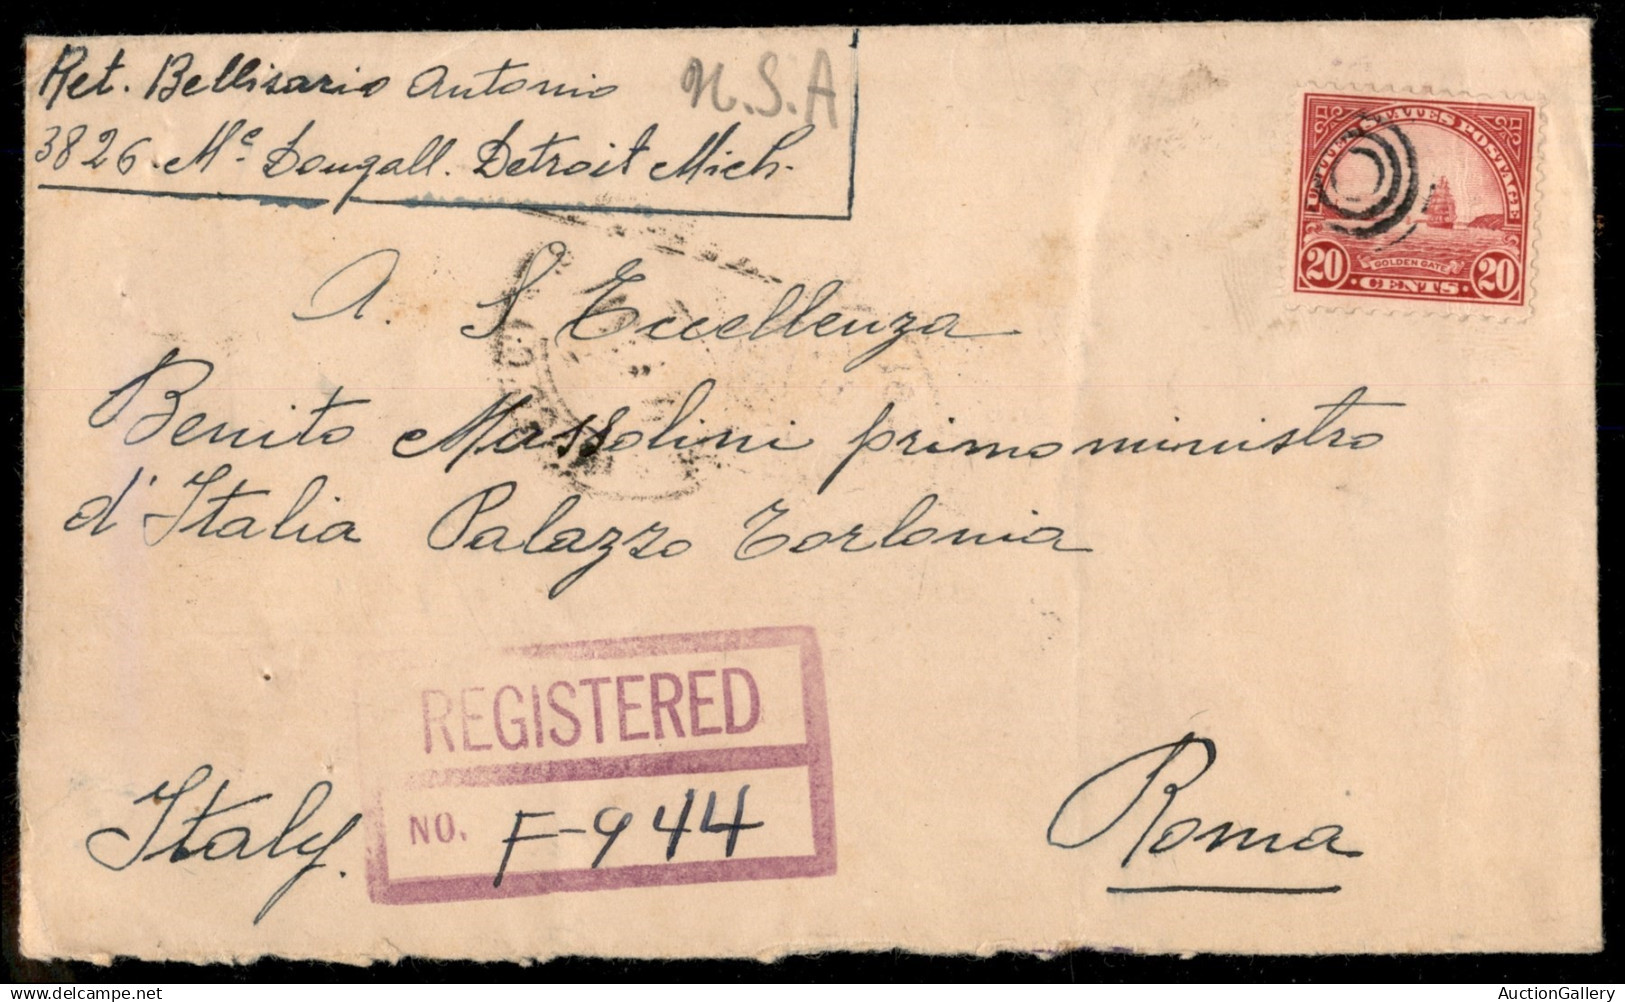 Ret. Bellisario Antonio
U.S.A
3826. Mc Dougall. Detroit Mich.
UNITED STATES POSTAGE
GOLDEN GATE
20 · CENTS · 20
A. S Eccellenza
Benito Mussolini primo ministro
d'Italia Palazzo Torlonia
REGISTERED
NO. F-944
Italy.
Roma
AuctionGallery